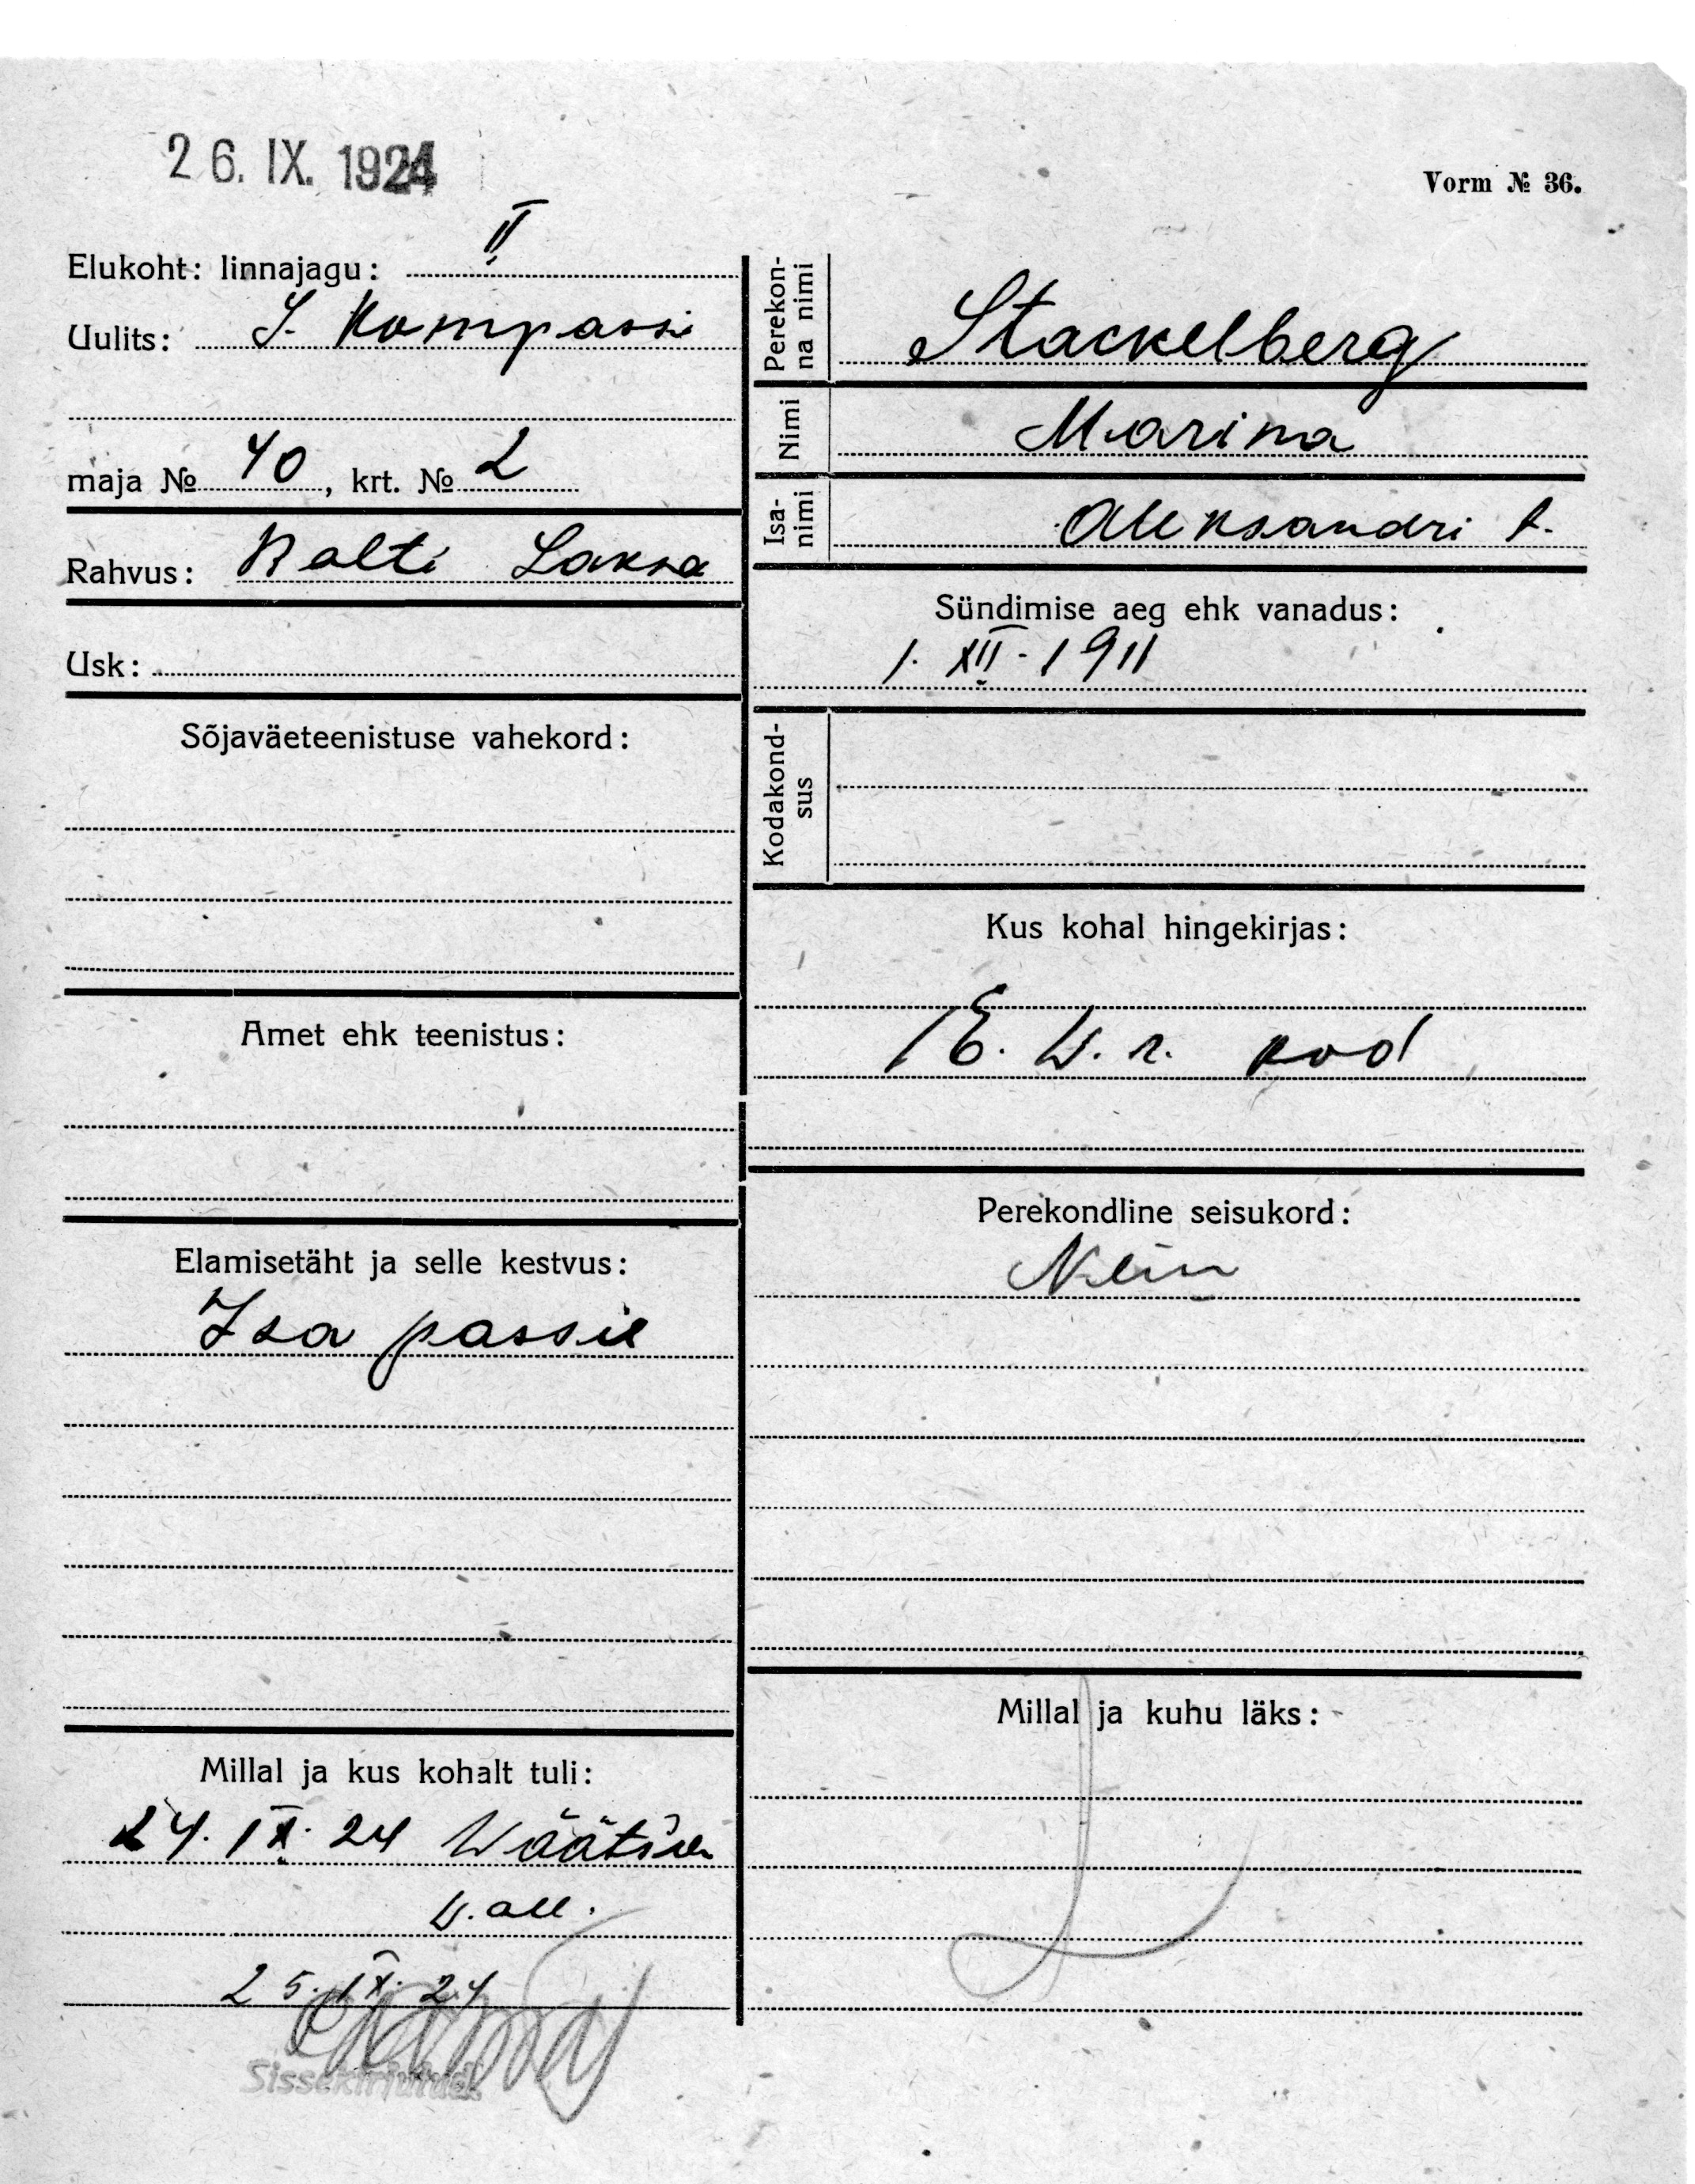 26. IX. 1924
Vorm № 36.
Elukoht: linnajagu: II
Uulits: S. Kompassi
maja № 40, krt. № 2
Rahvus: Balti Saksa
Usk:
Sõjaväeteenistuse vahekord:
Amet ehk teenistus:
Elamisetäht ja selle kestvus:
Isa passil
Millal ja kus kohalt tuli:
24. IX. 24 Wäätsa
w. all.
25. IX. 24
Sissekirjutud.
Perekonna nimi
Stackelberg
Nimi
Marina
Isanimi
Aleksandri t.
Sündimise aeg ehk vanadus:
1. XII - 1911
Kodakondsus
Kus kohal hingekirjas:
E. W. r. kod
Perekondline seisukord:
Millal ja kuhu läks: